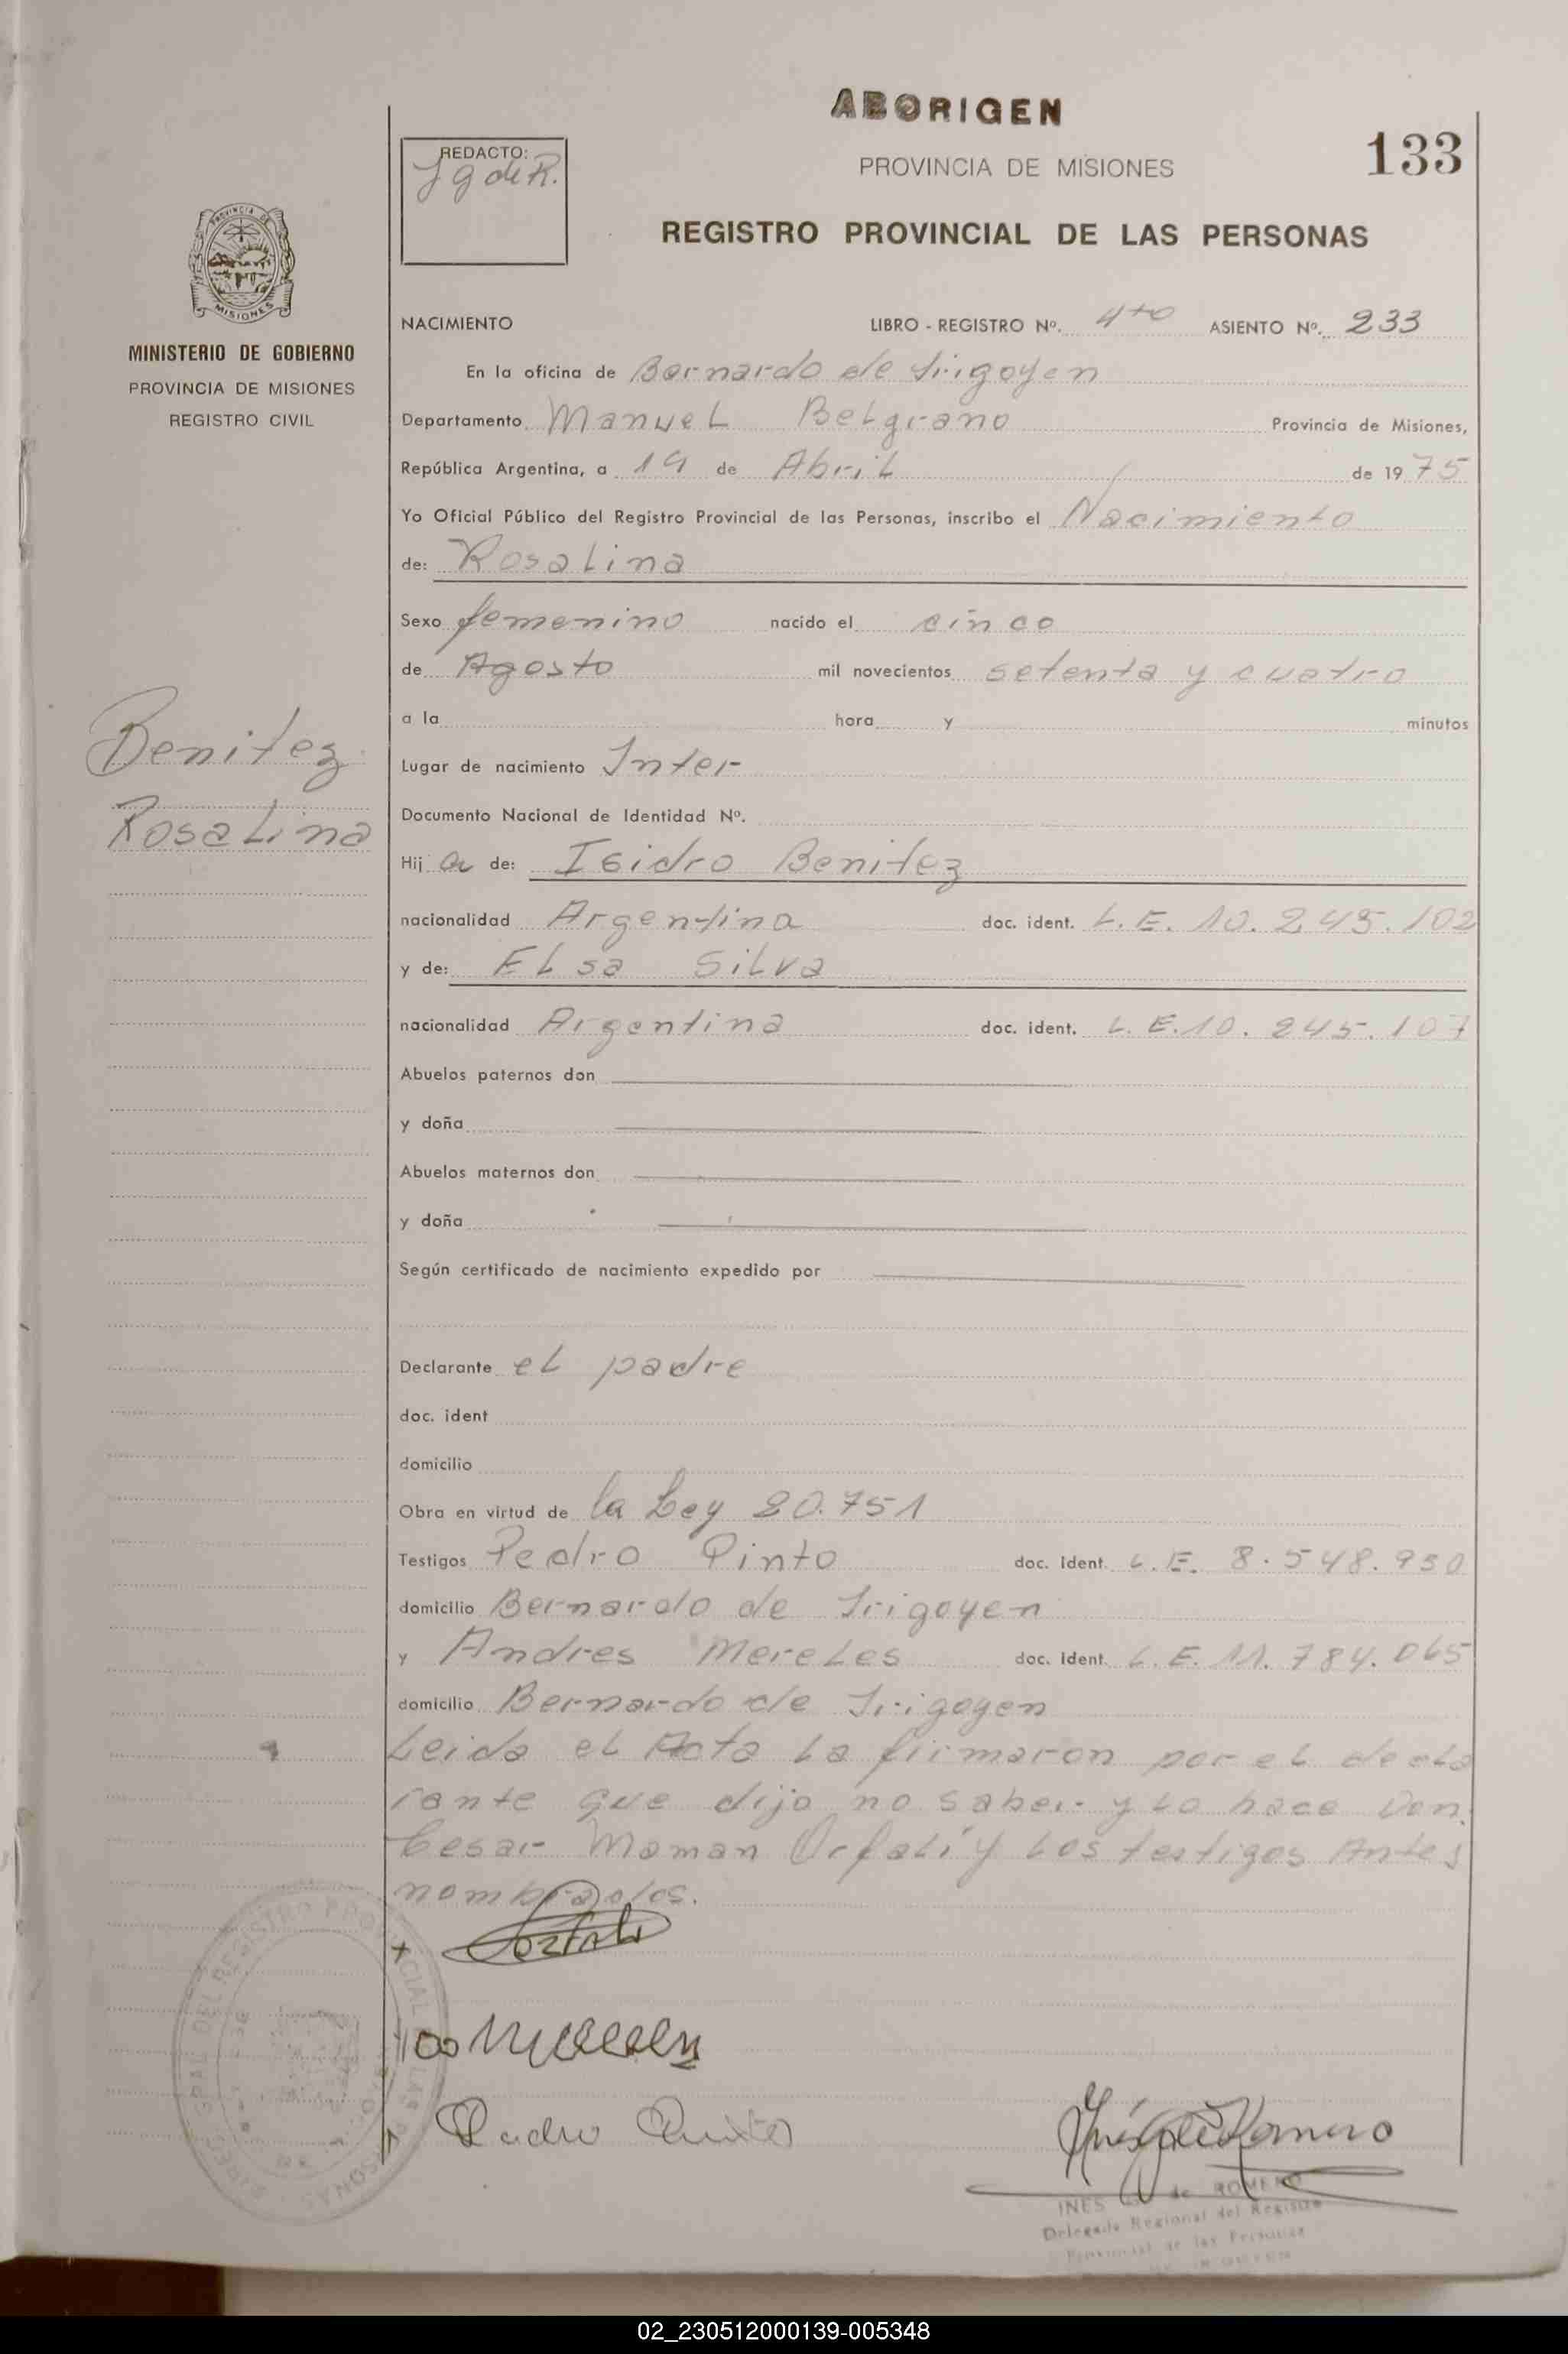 ABORIGEN
133
REDACTO:
J g de R.
PROVINCIA DE MISIONES
REGISTRO PROVINCIAL DE LAS PERSONAS
PROVINCIA DE
MISIONES
MINISTERIO DE GOBIERNO
PROVINCIA DE MISIONES
REGISTRO CIVIL
NACIMIENTO LIBRO - REGISTRO Nº. 4to ASIENTO Nº. 233
En la oficina de Bernardo de Irigoyen
Departamento Manuel Belgrano Provincia de Misiones,
República Argentina, a 19 de Abril de 19 75
Yo Oficial Público del Registro Provincial de las Personas, inscribo el Nacimiento
de: Rosalina
Sexo femenino nacido el cinco
de Agosto mil novecientos setenta y cuatro
a la hora y minutos
Benitez
Rosalina
Lugar de nacimiento Inter
Documento Nacional de Identidad Nº.
Hij a de: Isidro Benitez
nacionalidad Argentina doc. ident. L. E. 10.245.102
y de: Elsa Silva
nacionalidad Argentina doc. ident. L. E. 10.245.107
Abuelos paternos don
y doña
Abuelos maternos don
y doña
Según certificado de nacimiento expedido por
Declarante el padre
doc. ident
domicilio
Obra en virtud de la Ley 20.751
Testigos Pedro Pinto doc. ident. L. E. 8.548.930
domicilio Bernardo de Irigoyen
y Andres Mereles doc. ident. L. E. 11.784.065
domicilio Bernardo de Irigoyen
Leida el Acta la firmaron por el decla
rante que dijo no saber y lo hace Don
Cesar Maman Orfali y los testigos Antes
nombrados.
INES de ROMERO
Delegada Regional del Registro
Provincial de las Personas
02_230512000139-005348